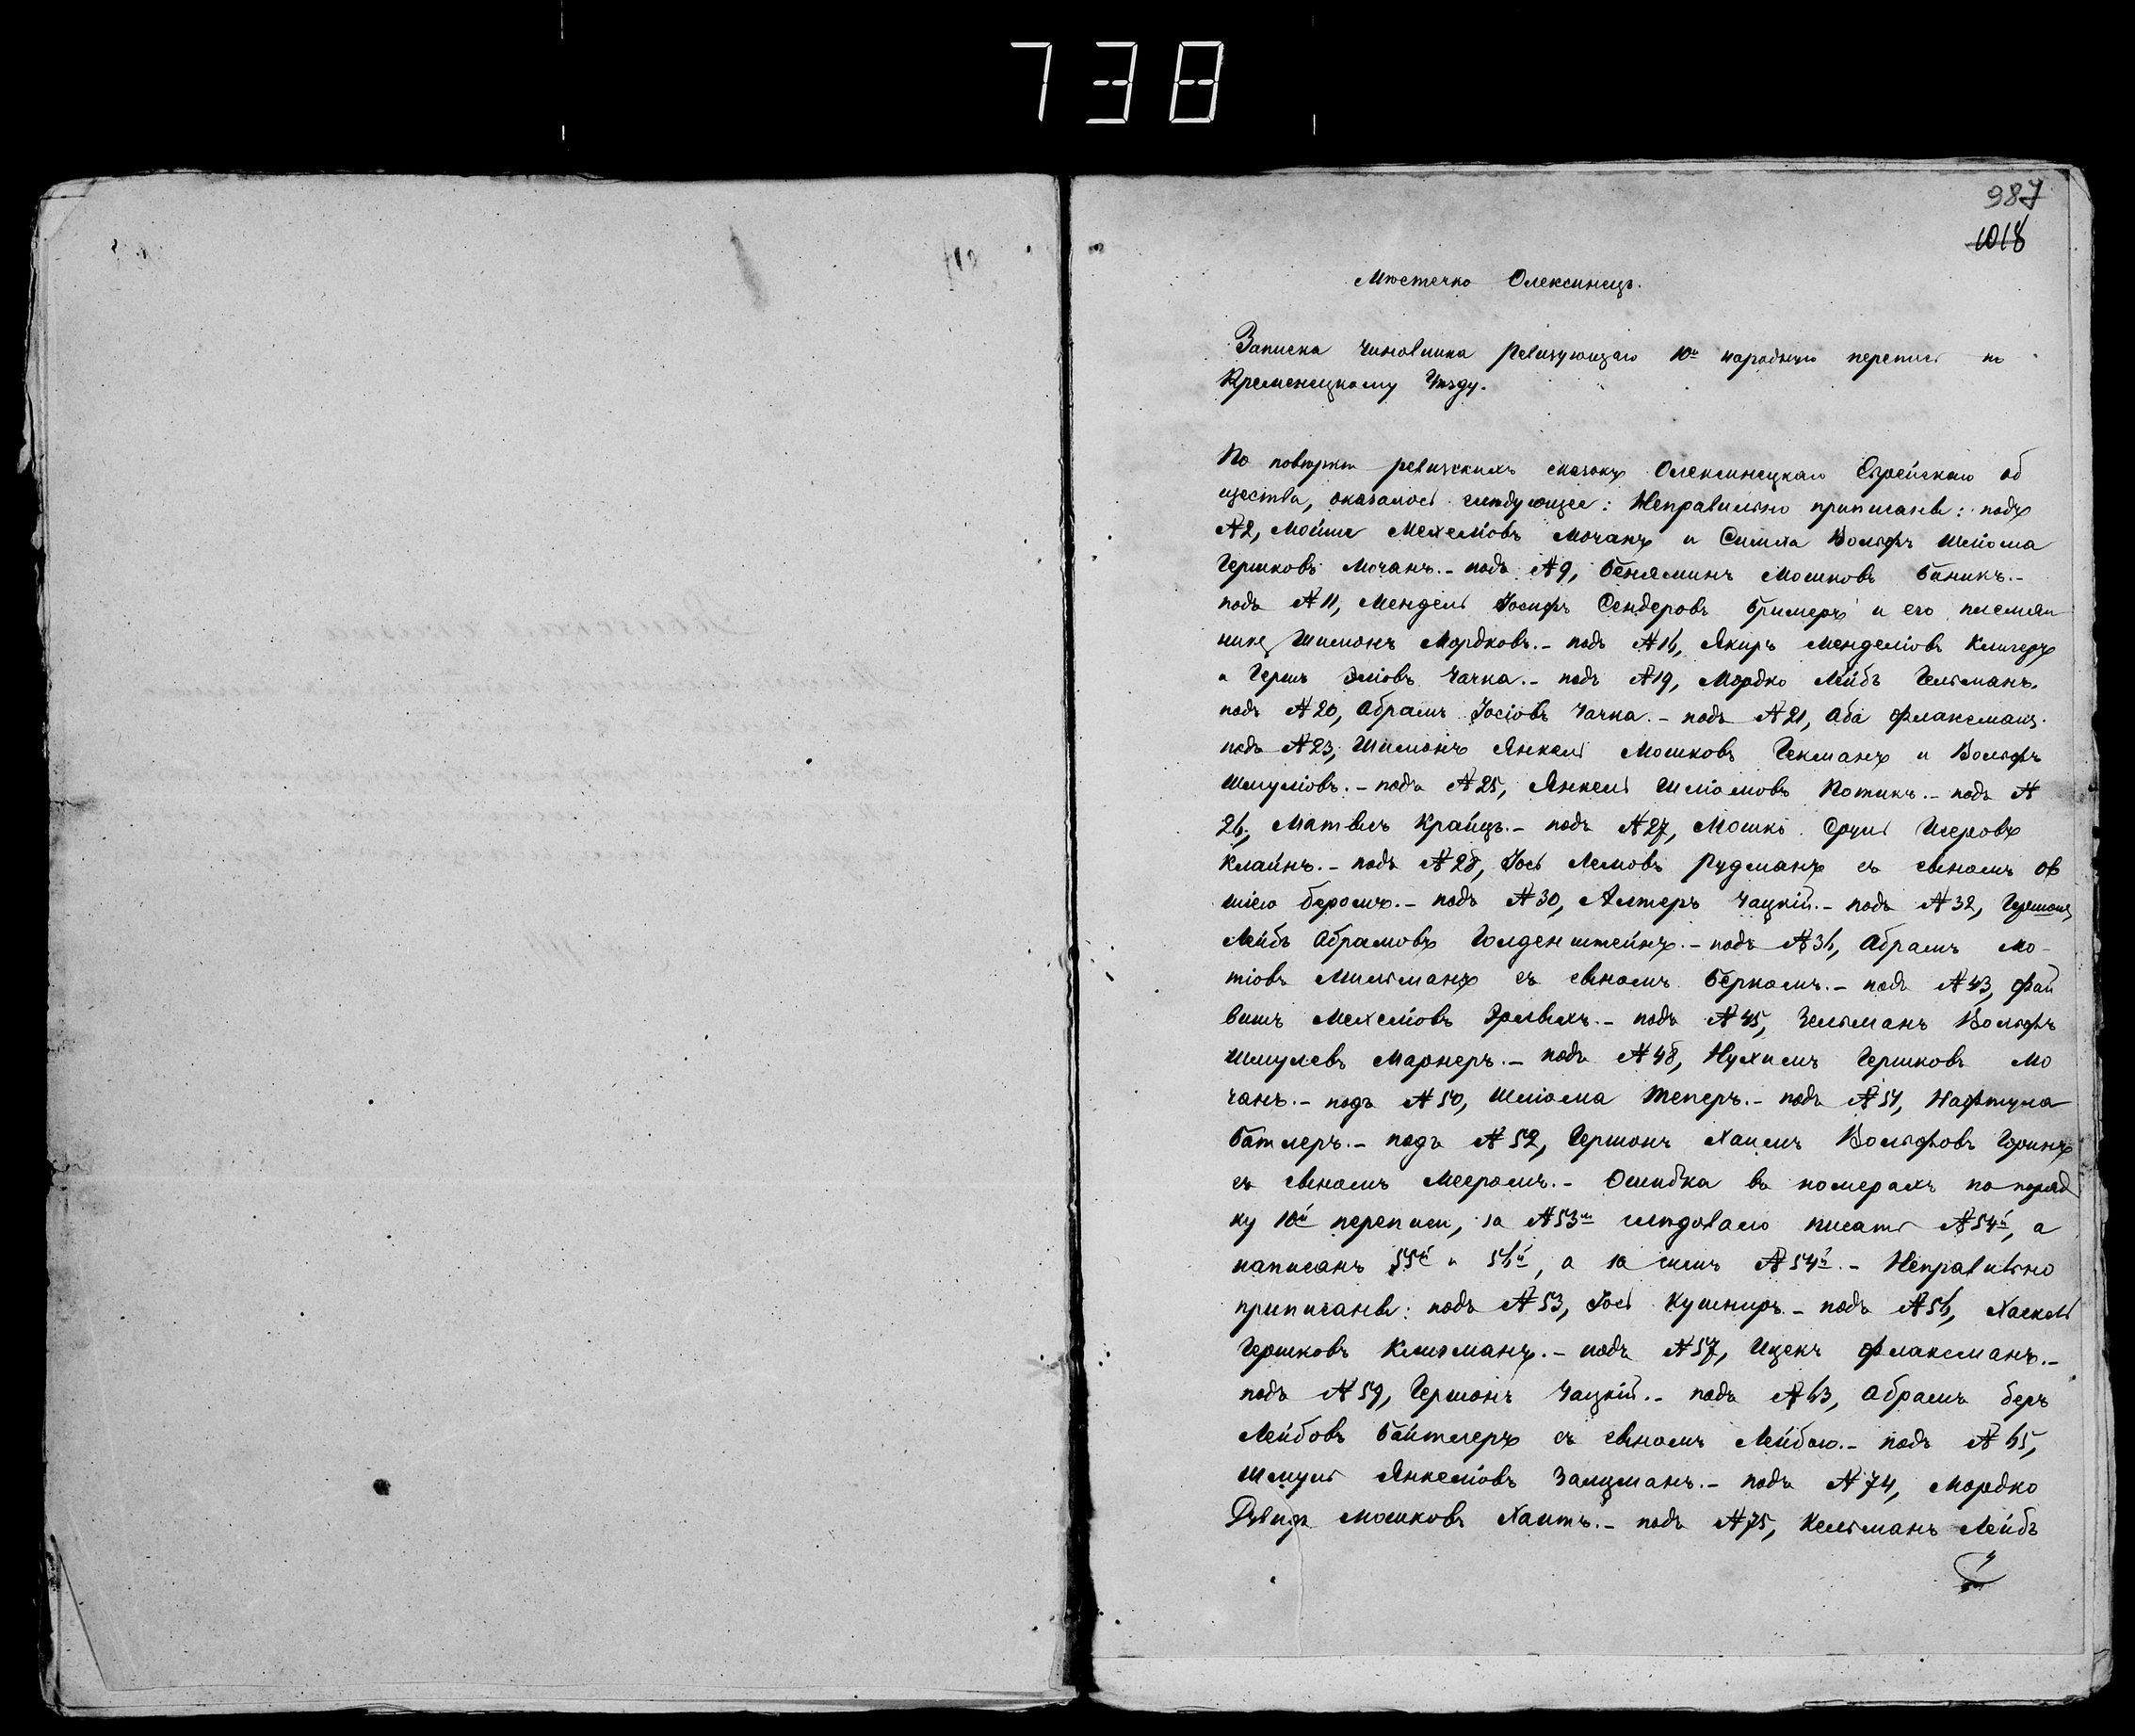 738
987
1018
Мѣстечко Олексинецъ.
Записка Чиновника Ревизующаго 10ю народную перепись по
Кременецкому Уѣзду.
По повѣркѣ ревизскихъ сказокъ Олексинецкаго Еврейскаго об
щества, оказалось слѣдующее: Неправильно приписаны: подъ
№2, Мойше Мехелiовъ Мочанъ и Симха Вольфъ Шлiома
Гершковъ Мочанъ.- подъ №9, Беняминъ Мошковъ Баникъ.-
подъ №11, Мендель Iосифъ Сендеровъ Бримеръ и его племян
никъ Шимонъ Мордковъ.- подъ №16, Якиръ Менделiовъ Клигеръ
и Гершъ Элiовъ Чачка.- подъ №19, Мордко Лейбъ Гельманъ.
подъ №20, Абрамъ Iосiовъ Чачка.- подъ №21, Аба Флаксманъ.
подъ №23, Шимонъ Янкель Мошковъ Гекманъ и Вольфъ
Шмулiовъ.- подъ №25, Янкель Шлiомовъ Котикъ.- подъ №
26, Матвись Крайцъ.- подъ №27, Мошко Сруль Исеровъ
Клайнъ.- подъ №28, Iось Лемовъ Рудманъ съ сыномъ Ов
шiею Беромъ.- подъ №30, Алтеръ Чацкiй.- подъ №32, Гершонъ
Лейбъ Абрамовъ Голденштейнъ.- подъ №36, Абрамъ Мо-
тiовъ Мильманъ съ сыномъ Беркомъ.- подъ №43, Фай
вишъ Мехелiовъ Эрлыхъ.- подъ №45, Зельманъ Вольфъ
Шмулевъ Марнеръ.- подъ №48, Нухимъ Гершковъ Мо
чанъ.- подъ №50, Шлiома Теперъ.- подъ №51, Нафтула
Батлеръ.- подъ №52, Гершонъ Хаимъ Вольфовъ Горинъ
съ сыномъ Мееромъ.- Ошибка въ номерахъ по поряд
ку 10й переписи, за №53м слѣдовало писать №54й, а
написанъ 55й и 56й, а за симъ №54й.- Неправильно
приписаны: подъ №53, Iось Кушниръ.- подъ №56, Хаскель
Гершковъ Клигманъ.- подъ №57, Ицекъ Флаксманъ.-
подъ №59, Гершонъ Чацкiй.- подъ №63, Абрамъ Беръ
Лейбовъ Байтлеръ съ сыномъ Лейбою.- подъ №65,
Шмуль Янкелiовъ Залцманъ.- подъ №74, Мордко
Мошковъ Хаитъ.- подъ №75, Кельманъ Лейбъ